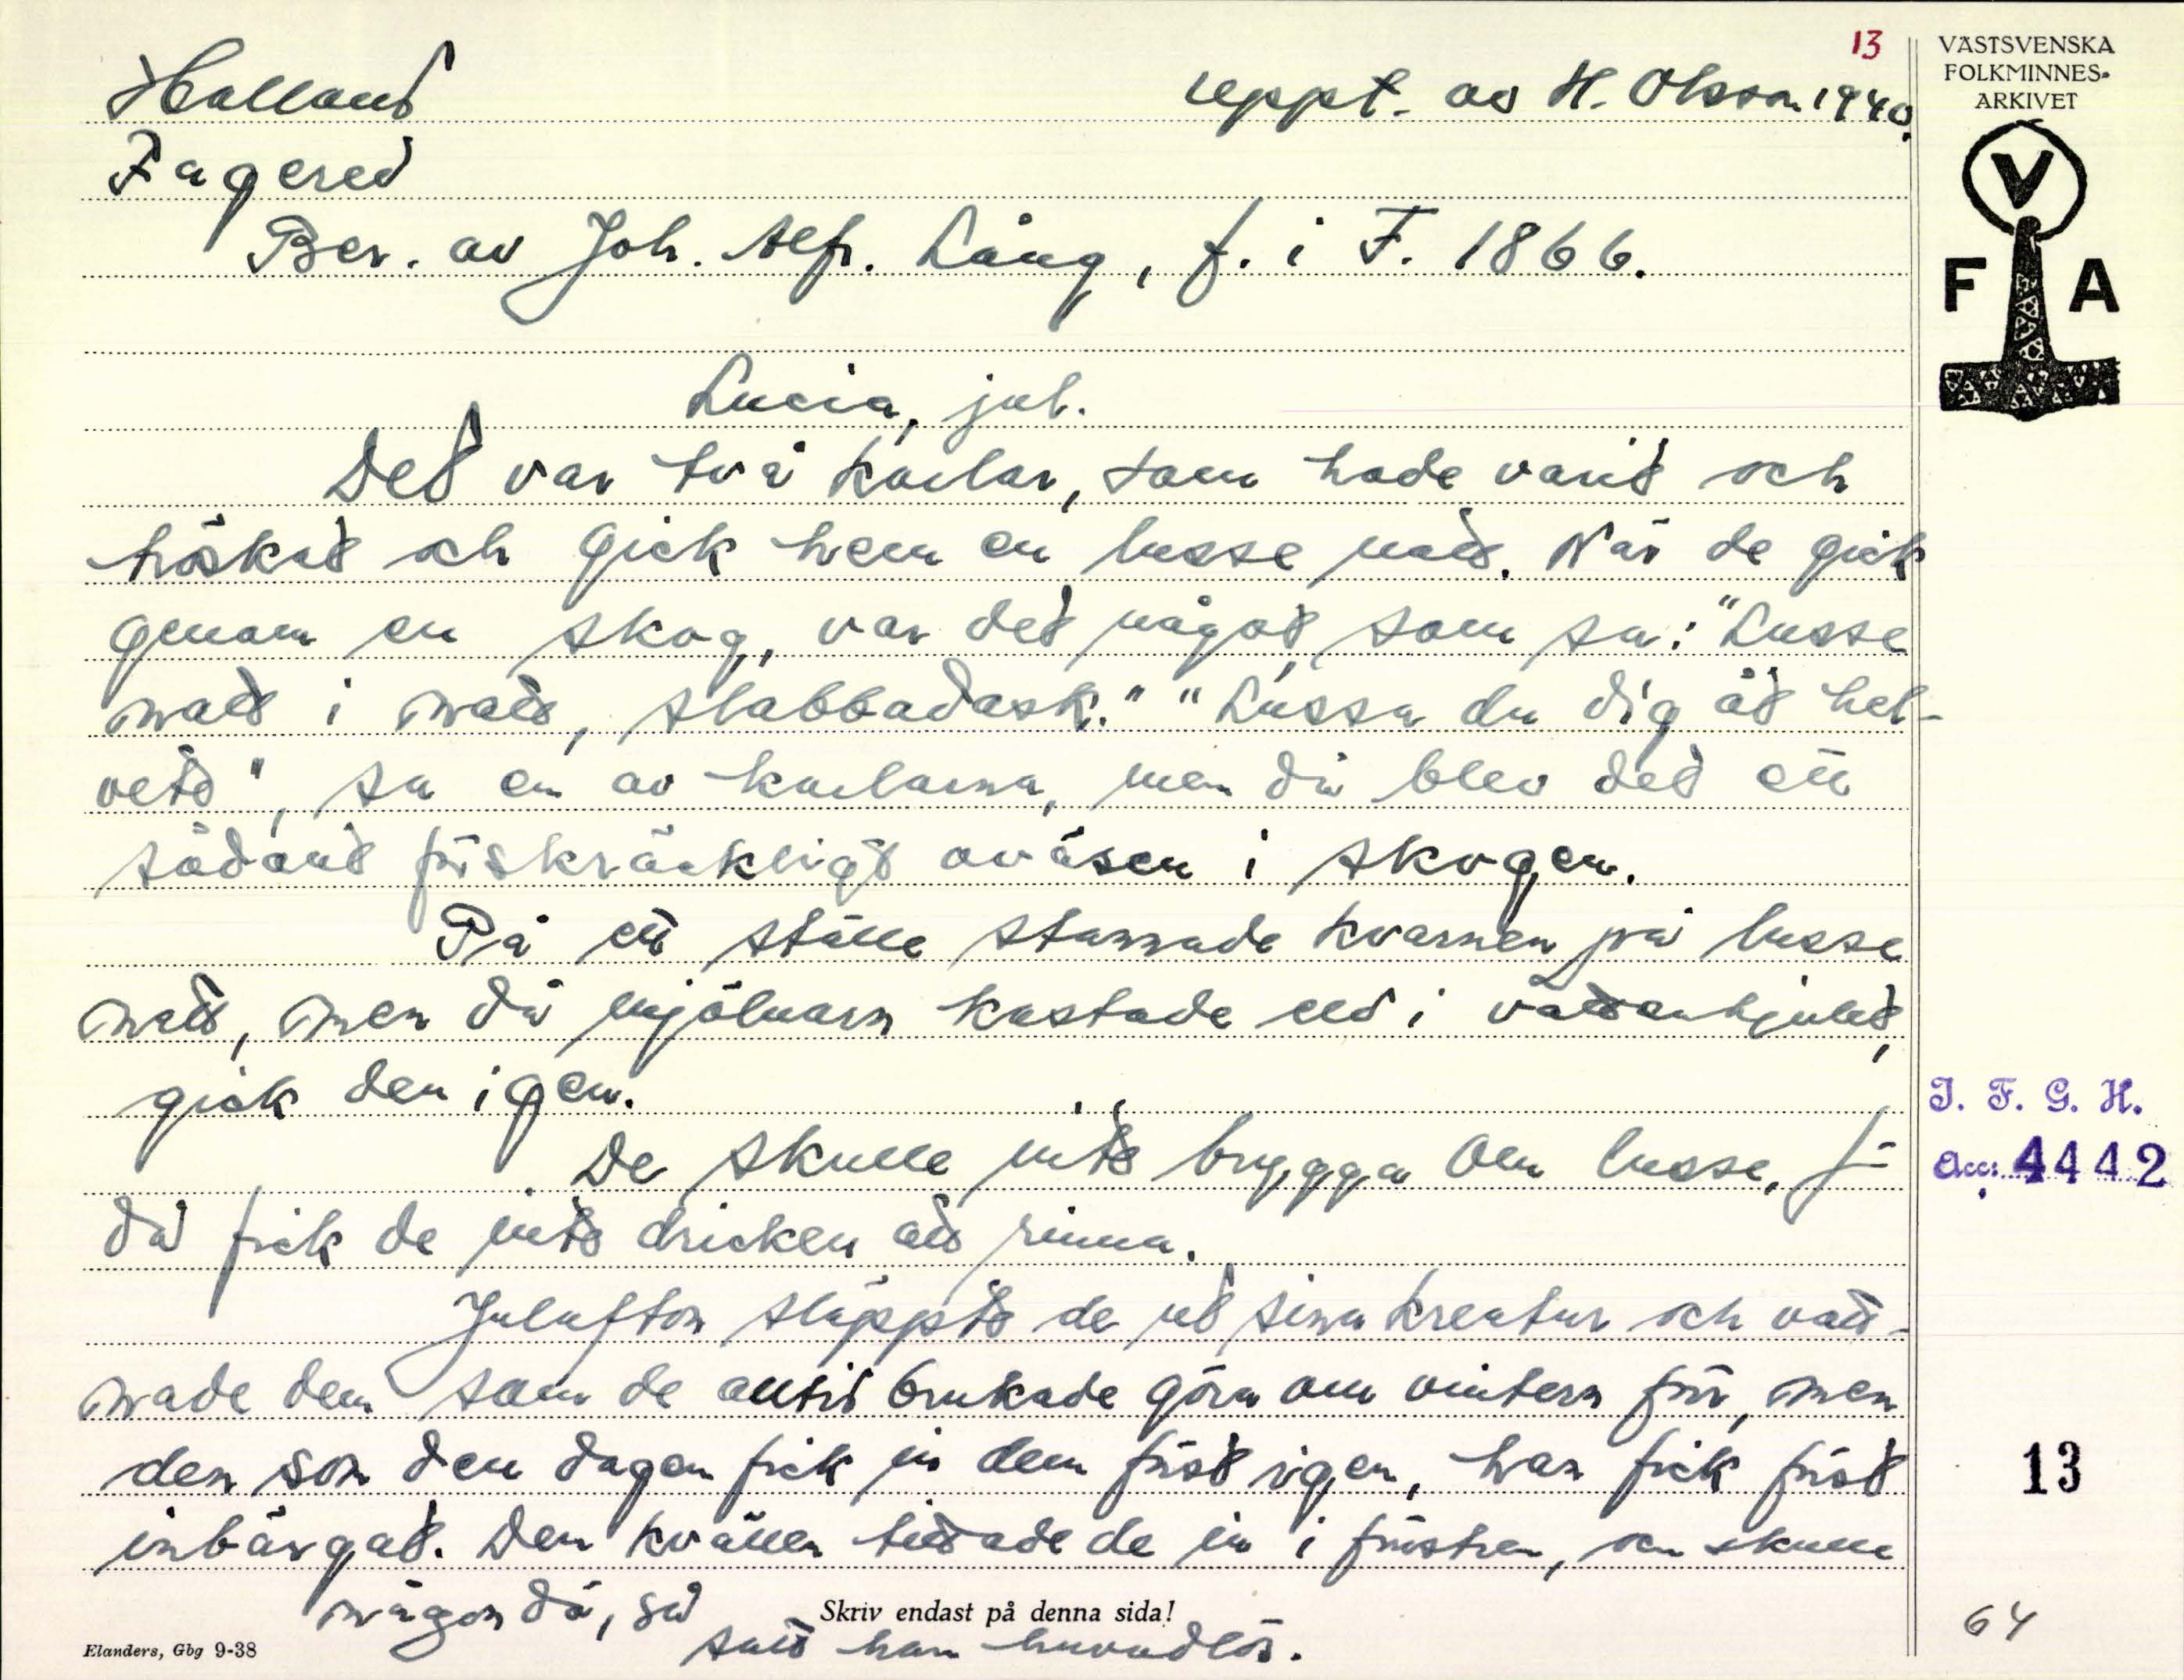 13
Halland
uppt. av H. Olsson 1940.
Fagered
Ber. av Joh. Alfr. Lång, f. i F. 1866.
Lucia, jul.
Det var två karlar, som hade varit och
tröskat och gick hem en lusse natt. När de gick
genom en skog, var det något, som sa: "Lusse
natt i natt, slabbadask." "Lussa du dig åt hel-
vete", sa en av karlarna, men då blev det ett
sådant förskräckligt oväsen i skogen.
På ett ställe stannade kvarnen på lusse
natt, men då mjölnarn kastade eld i vattenhjulet,
gick den igen.
De skulle inte brygga om lusse, för
då fick de inte dricken att rinna.
Julafton släppte de ut sina kreatur och vatt-
nade dem som de alltid brukade göra om vintern för, men
den som den dagen fick in dem först igen, han fick först
inbärgat. Den kvällen tittade de in i fönstren, om skulle
någon dö, så
satt han huvudlös.
Skriv endast på denna sida!
Elanders, Gbg 9-38
VÄSTSVENSKA
FOLKMINNES-
ARKIVET
V
F A
I. F. G. H.
Acc. 4442
13
64